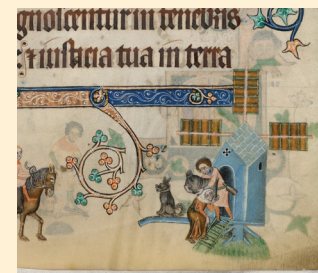 gnoscentur in tenebris
⁊ iusticia tua in terra